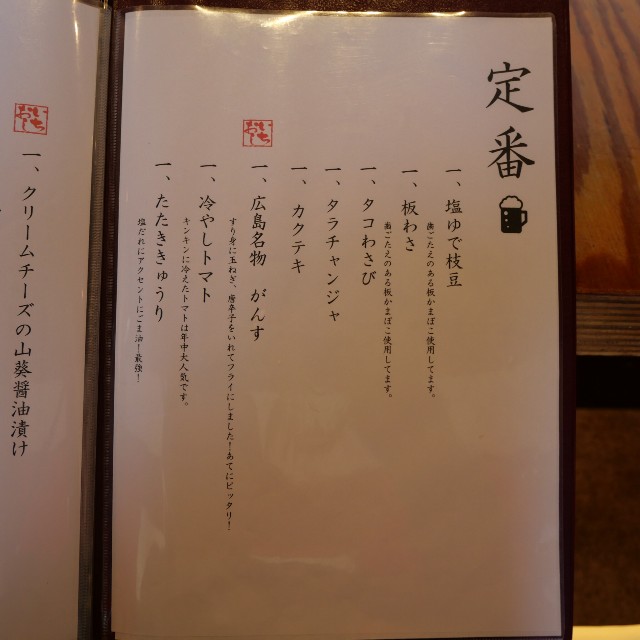 定番
一、塩ゆで枝豆
歯ごたえのある板かまぼこ使用してます。
一、板わさ
歯ごたえのある板かまぼこ使用してます。
一、タコわさび
一、タラチャンジャ
一、カクテキ
一、広島名物 がんす
すり身に玉ねぎ、唐辛子をいれてフライにしました!あてにピッタリ!
一、冷やしトマト
キンキンに冷えたトマトは年中大人気です。
一、たたききゅうり
塩だれにアクセントにごま油!最強!
一、クリームチーズの山葵醤油漬け